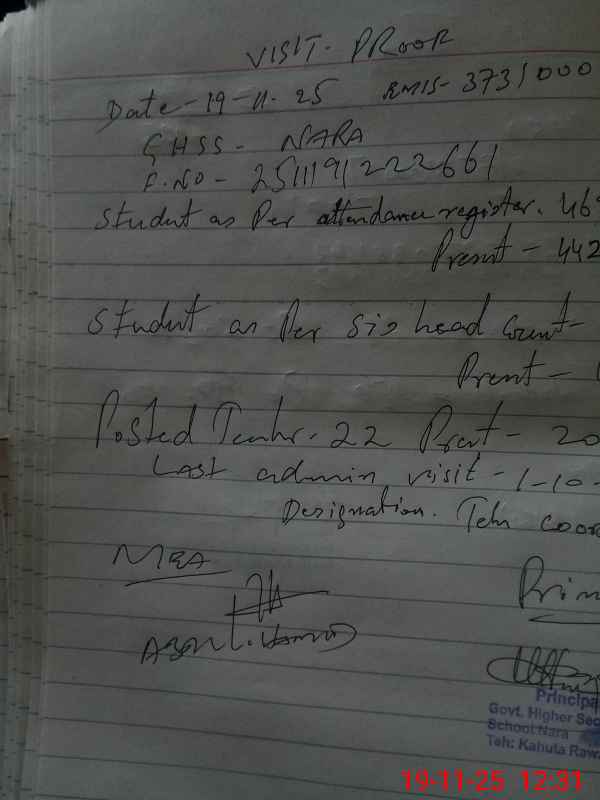 VISIT. PROOF
Date - 19-11-25 EMIS- 3731000
GHSS - NARA
F.NO - 251119122266
Student as Per attendance register. 46
Present - 442
Student as Per SIS head Count -
Present -
Posted Teacher. 22 Present - 20
Last admin visit - 1-10-
Designation. Teh coor
MEA
Prin
Principa
Govt. Higher Sec
School Nara
Teh: Kahuta Raw
19-11-25 12:31